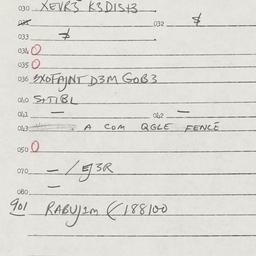 030 XEVR3 K3DIST3
032 $
033 $
034 O
035 O
036 3XOFAJNT D3M GOB3
040 SITIBL
041 — 042 —
043 A COM QGLE FENCE
050 O
070 — / EJ3R
080 —
901 RABUJ1M (/188100